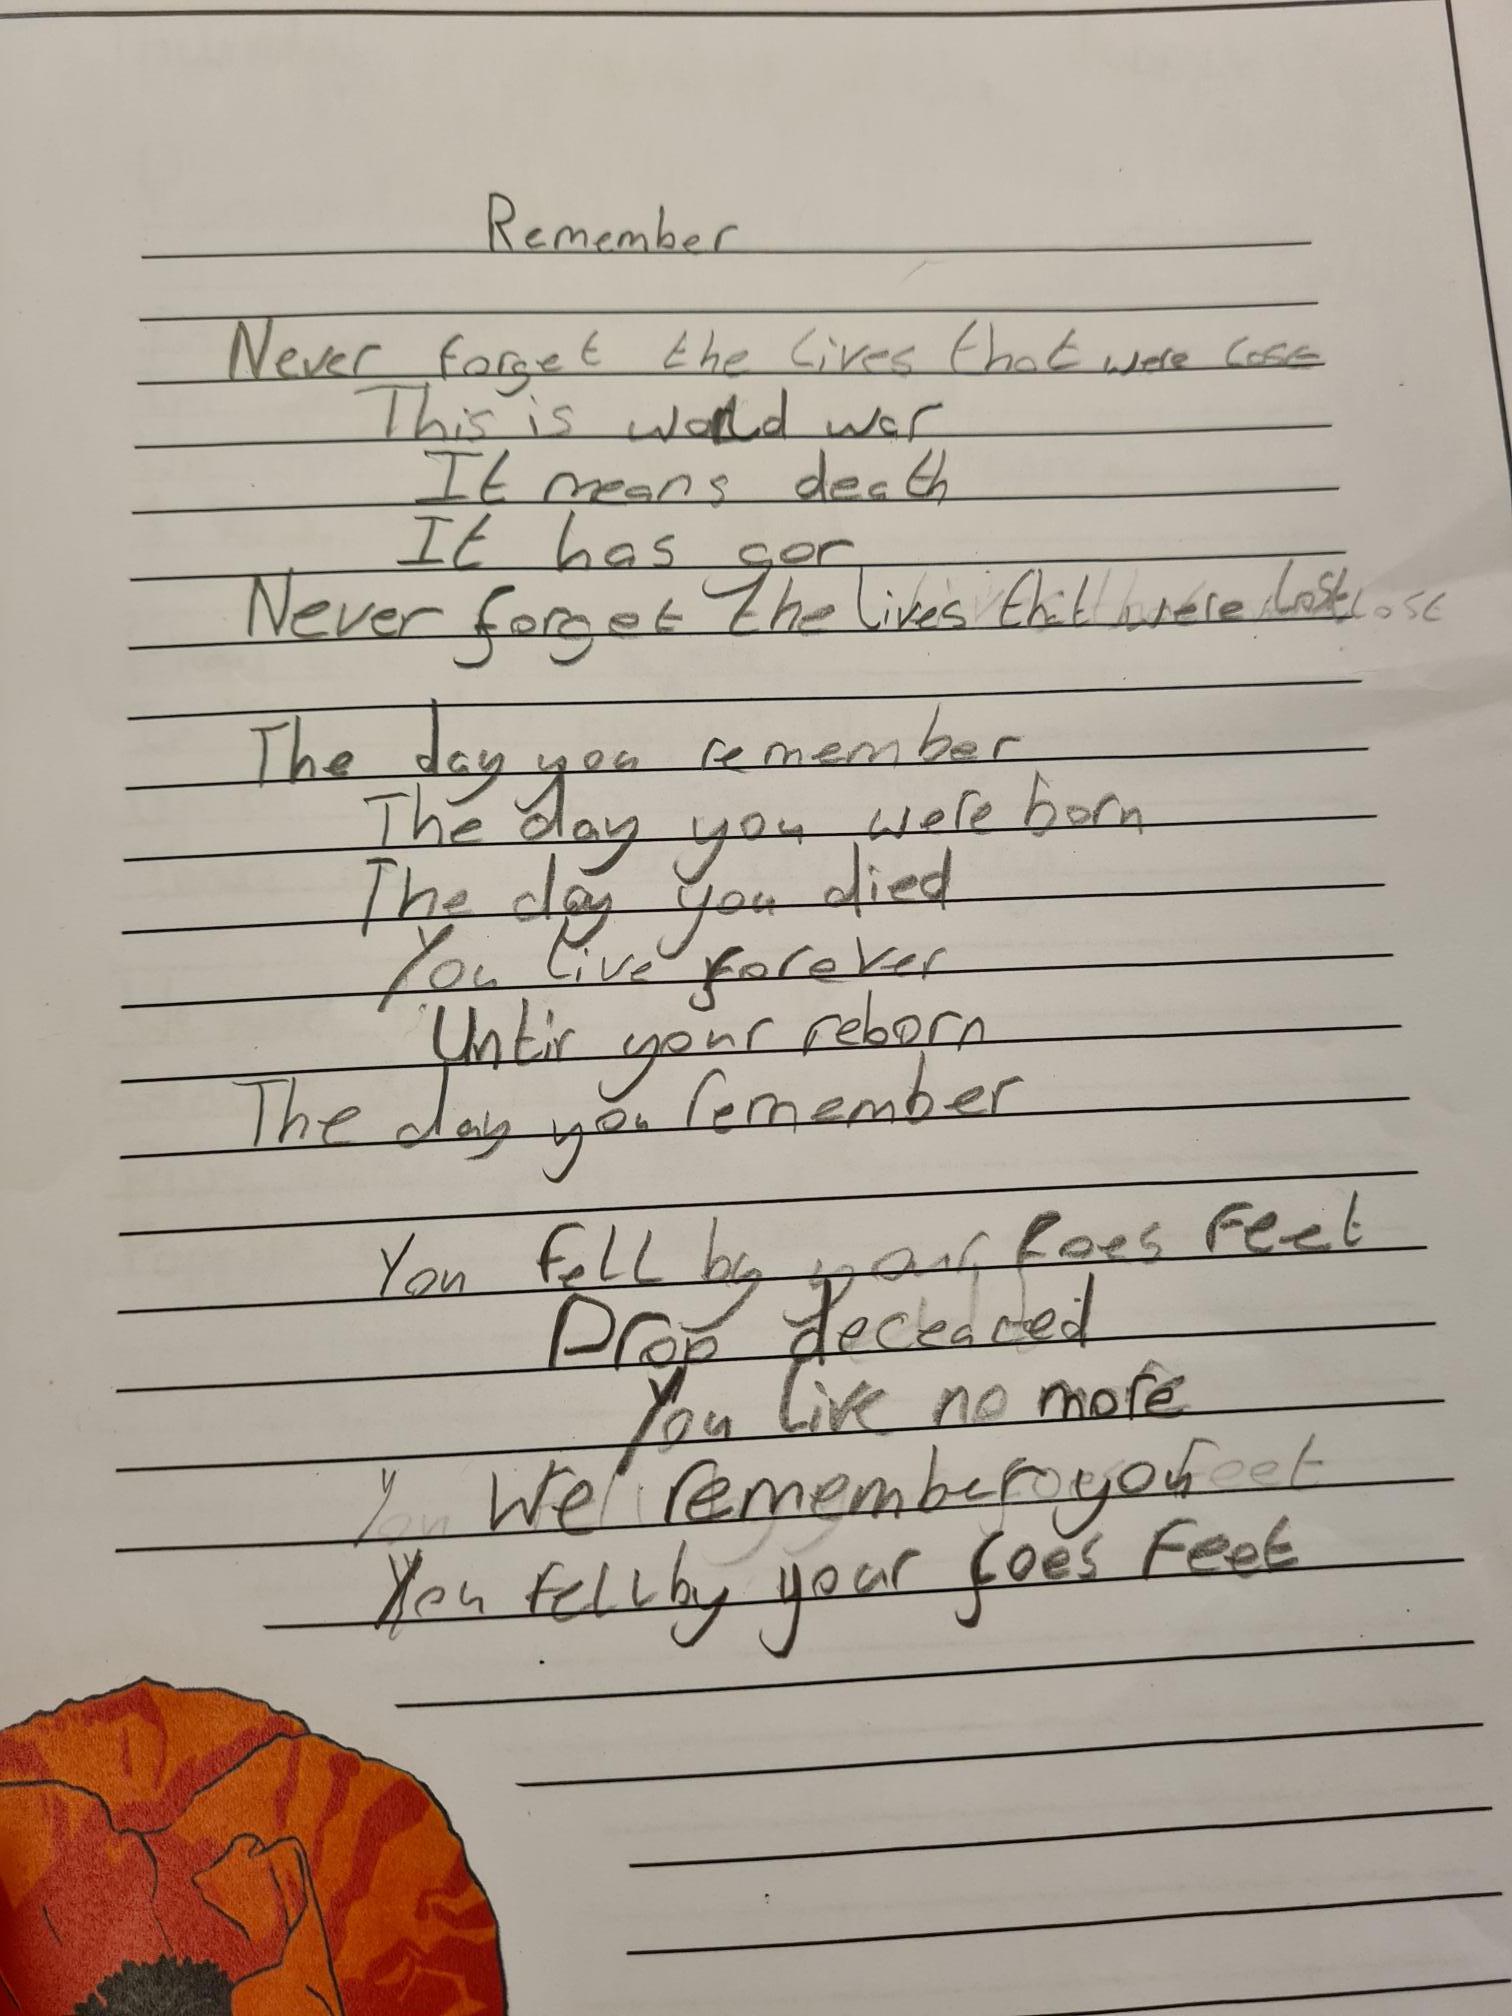 Remember
Never forget the lives that were lost
This is world war
It means death
It has gor
Never forget The lives that were lost
The day you remember
The day you were born
The day you died
You live forever
Until your reborn
The day you remember
You fell by your foes feet
Drop deceaced
You live no more
We remember you
You fell by your foes feet